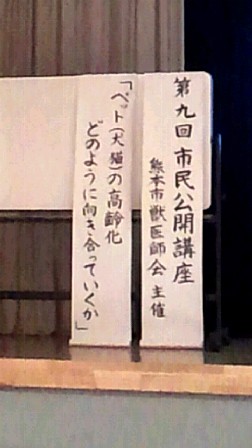 第九回市民公開講座
熊本市獣医師会 主催
「ペット(犬猫)の高齢化
どのように向き合っていくか」